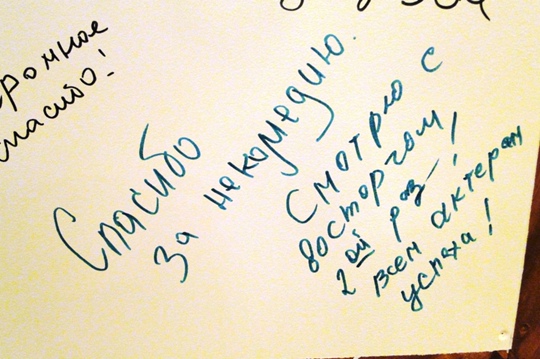 огромное
спасибо!
Спасибо
за некомедию.
Смотрю с
восторгом,
2ой раз!
всем актерам
успеха!